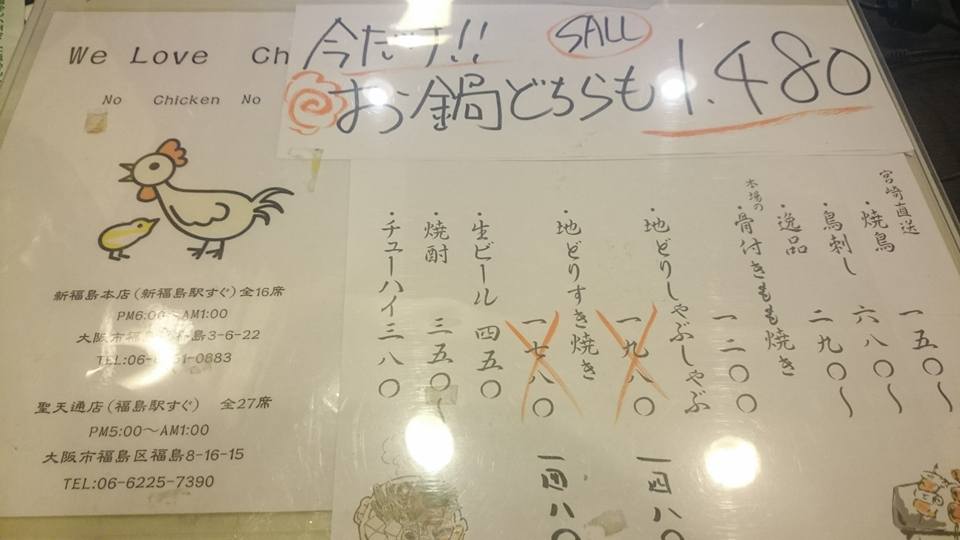 We Love Ch
No Chicken No
新福島本店(新福島駅すぐ)全16席
PM6:00～AM1:00
大阪市福島 島3-6-22
TEL:06- 51-0883
聖天通店(福島駅すぐ) 全27席
PM5:00～AM1:00
大阪市福島区福島8-16-15
TEL:06-6225-7390
今だけ!! SALL
お鍋どちらも1.480
宮崎直送
・焼鳥 一五〇～
・鳥刺し 六八〇～
・逸品 二九〇～
本場の
・骨付きもも焼き 一二〇〇
・地どりしゃぶしゃぶ
一九八〇
一四八〇
・地どりすき焼き
一七八〇
一四八〇
・生ビール 四五〇
・焼酎 三五〇～
・チューハイ三八〇